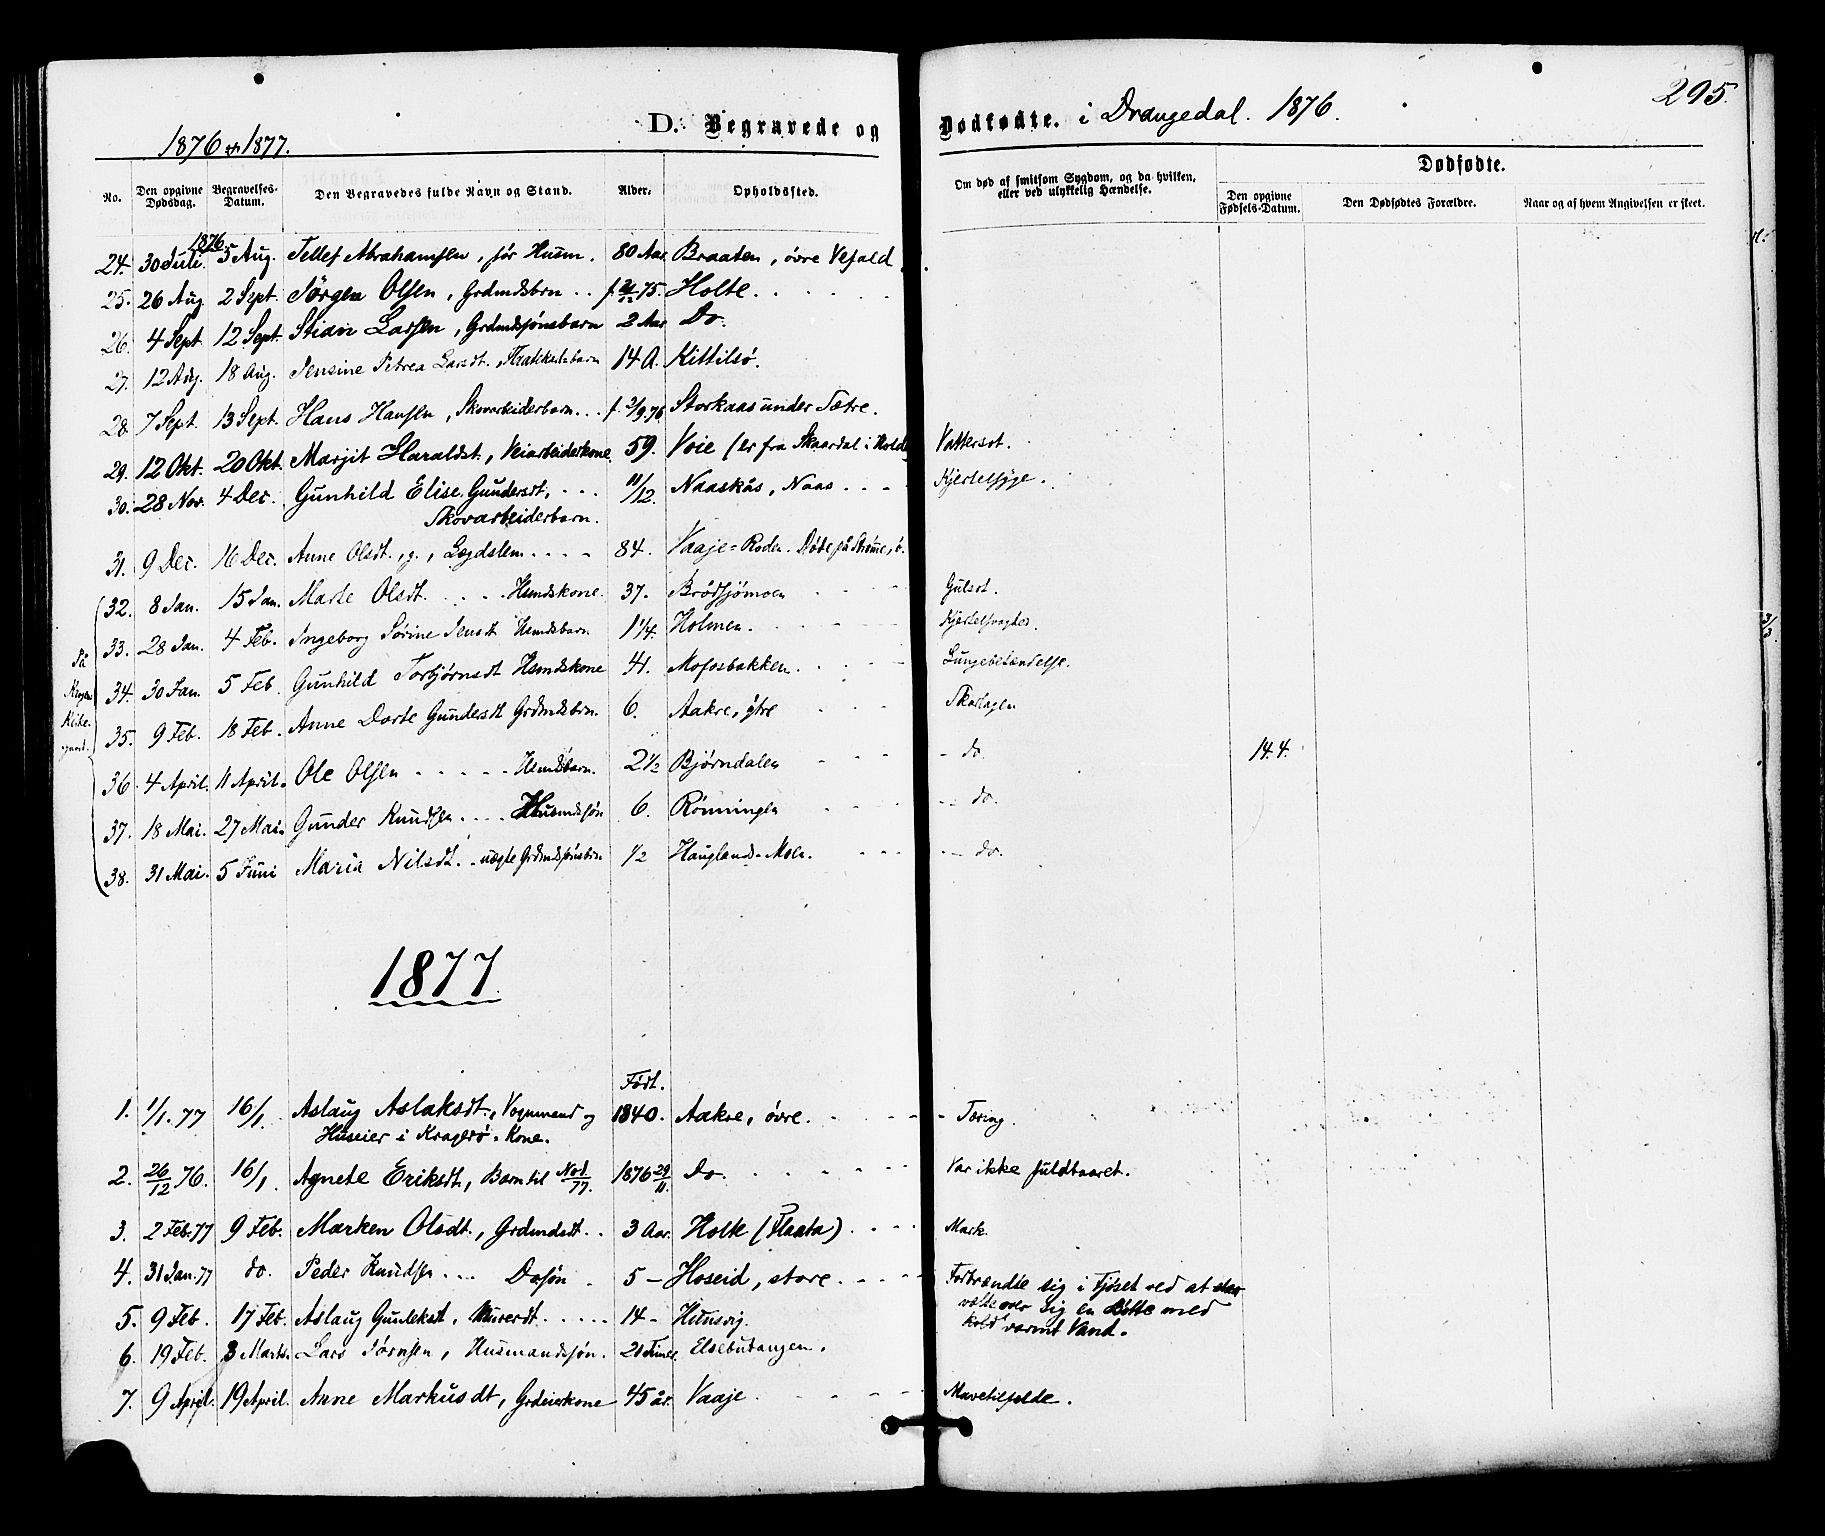 295.
1876 & 1877.
D. Begravede og Dødfødte. i Drangedal. 1876.
No. Den opgivne Dødsdag. Begravelses-Datum. Den Begravedes fulde Navn og Stand. Alder. Opholdssted. Om død af smitsom Sygdom, og da hvilken, eller ved ulykkelig Hændelse. Dødfødte. Den opgivne Fødsels-Datum. Den Dødfødtes Forældre. Naar og af hvem Angivelsen er skeet.
1876
24. 30 Juli. 5 Aug. Tellef Abrahamsen, før Husm. 80 Aar. Braaten, øvre Vefald.
25. 26 Aug. 2 Sept. Jørgen Olsen, Grdmdsbrn. f. 21/12 75. Holte.
26. 4 Sept. 12 Sept. Stian Larsen, Grdmdsønsbarn 2 Aar Do.
27. 12 Aug. 18 Aug. Jensine Petrea Larsdt. 14 A. Kittilsø.
28. 7 Sept. 13 Sept. Hans Hansen, Skovarbeiderbarn. f. 2/9.76 Storkaas under Sætre.
29. 12 Okt. 20 Okt. Margit Haraldsdt., Veiarbeiderkone. 59. Voie (er fra Skaardal i Hold Vattersot.
30. 28 Nov. 4 Dec. Gunhild Elise Gundersdt, 11/12. Naaskås, Naas Kjertelsyge.
Skovarbeiderbarn.
31. 9 Dec. 16 Dec. Anne Olsdt., g., Lægdslem 84. Vaaje-Roden. Døde på Strøme, ø.
32. 8 Jan. 15 Jan. Marte Olsdt. Hsmdskone. 37. Brødsjømoen Gulsot.
33. 28 Jan. 4 Feb. Ingeborg Sørine Jensdt Hsmdsbarn. 1 1/4. Holmen. Kjertelsvaghed.
34. 30 Jan. 5 Feb. Gunhild Torbjørnsdt Hsmdskone 41. Mofosbakken. Lungebetændelse.
På
Kirke-
gaard.
35. 9 Feb. 18 Feb. Anne Dorte Gundersdt Grdmdsbrn. 6. Aakre, ytre Skarlagen
36 4 April. 11 April. Ole Olsen Hsmdsbarn. 2 1/2 Bjørndalen do. 14.4.
37. 18 Mai. 27 Mai. Gunder Knudsen Husmdssøn 6. Rønningen do.
38. 31 Mai. 5 Juni Maria Nilsdt. uægte Grdmdsønsbrn. 1/2 Hauglands-Moen. do.
1877.
Født.
1. 1/1. 77 16/1. Aslaug Aslaksdt., Vognmand og 1840. Aakre, øvre. Tæring.
Huseier i Kragerø. Kone.
2. 26/12 76. 16/1 Agnete Eriksdt., Barn til No 1/77. 1876 29/11. Do. Var ikke fuldbaaret.
3. 2 Feb. 77 9 Feb. Marken Olsdt., Grdmdsdt. 3 Aar. Holte (Flaata) Mark.
4. 31 Jan. 77 do. Peder Knudsen Do søn 5 – Hoseid, store. Forbrændte sig i Fjøset ved at
vælte over sig en Bøtte med
kold varmt Vand.
5. 9 Feb. 17 Feb. Aslaug Gunleksdt, Murerdt. 14 – Hitusvig.
6. 19 Feb. 3 Marts. Lars Jørnsen, Husmandssøn. 21 Timer. Elsebutangen.
7. 9 April. 19 April. Anne Markusdt, Grdeierkone 45 år. Vaaje. Mavetilfelde.